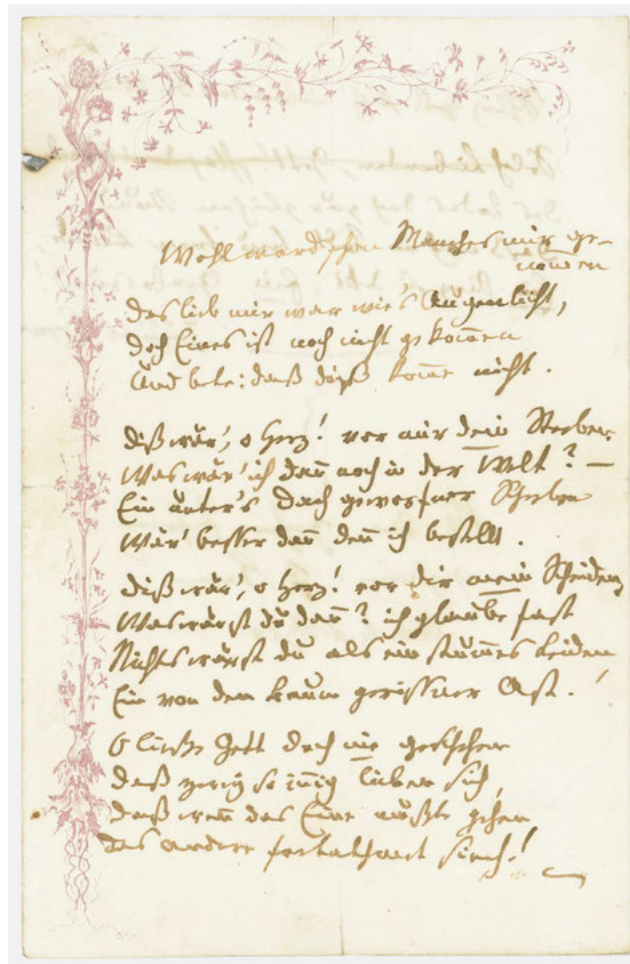 Wohl ward schon Manches mir ge-
nom̄en
Das lieb mir war wie's Augenlicht,
Doch Eines ist noch nicht gekom̄en
Und bete: daß diß kom̄e nicht.
Diß wär', o Herz! vor mir dein Sterben,
Was wär' ich dan̄ noch in der Welt? –
Ein unter's Dach geworfner Scherben
Wär' besser dan̄ den̄ ich bestellt.
Diß wär', o Herz! vor dir mein Scheiden,
Was wärst du dan̄? ich glaube fast
Nichts wärst du als ein stum̄es Leiden
Ein von dem Baum gerissner Ast.
O ließe Gott doch nie geschehen
daß zwei so in̄ig lieben sich,
daß wen̄ das Eine müßte gehen
das andere